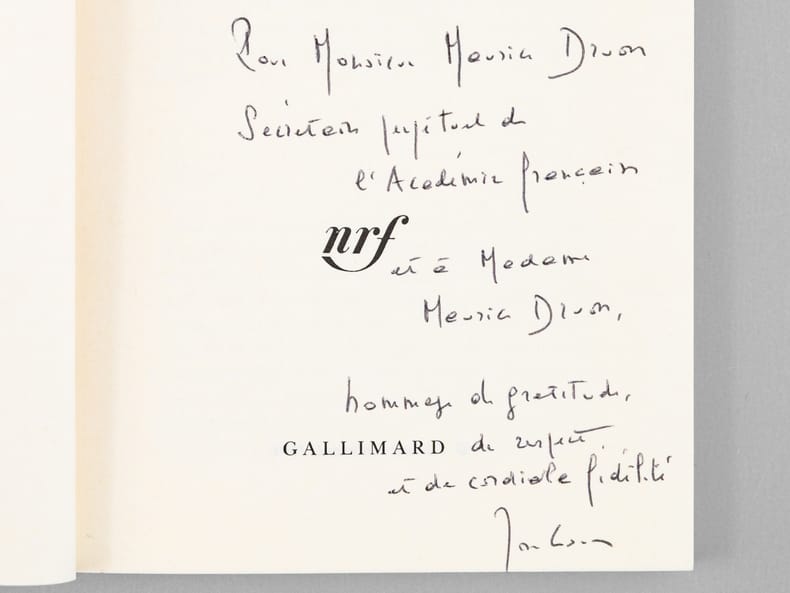 Pour Monsieur Maurice Druon
Secrétaire perpétuel de
l'Académie française
nrf
et à Madame
Maurice Druon,
hommage de gratitude,
GALLIMARD
de respect
et de cordiale fidélité